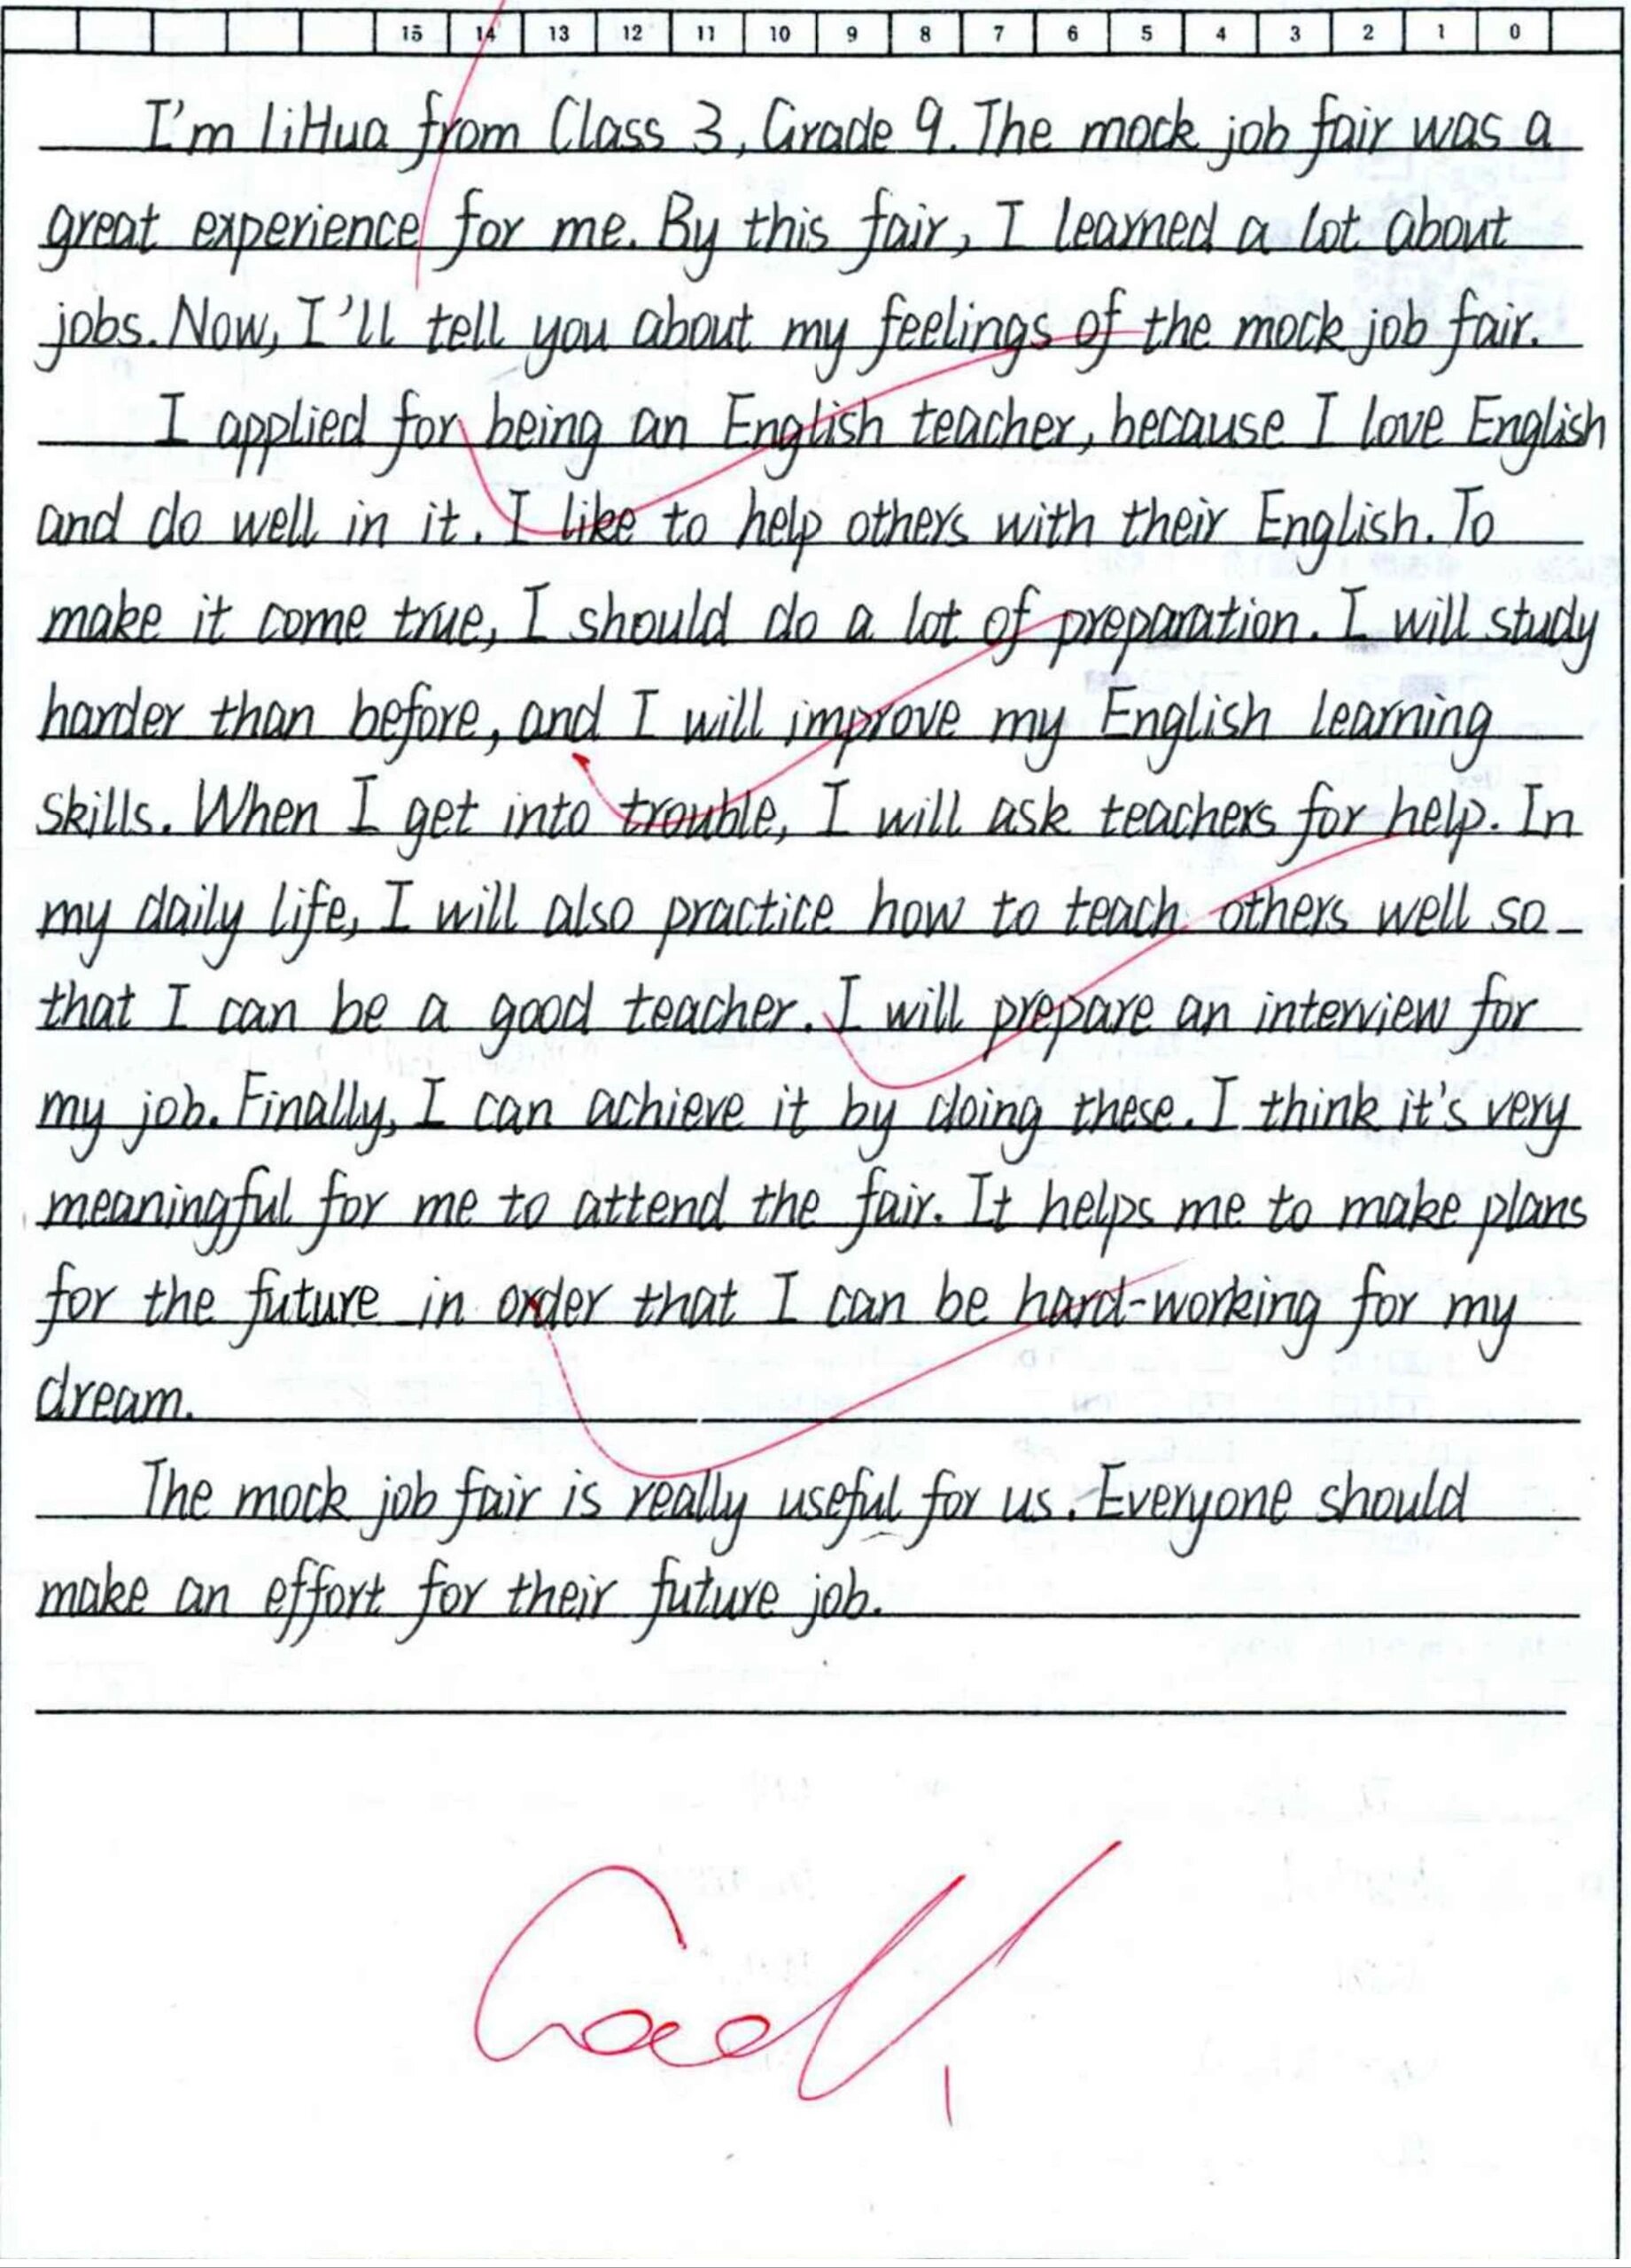 15 14 13 12 11 10 9 8 7 6 5 4 3 2 1 0
I'm LiHua from Class 3, Grade 9. The mock job fair was a
great experience for me. By this fair, I learned a lot about
jobs. Now, I'll tell you about my feelings of the mock job fair.
I applied for being an English teacher, because I love English
and do well in it. I like to help others with their English. To
make it come true, I should do a lot of preparation. I will study
harder than before, and I will improve my English learning
skills. When I get into trouble, I will ask teachers for help. In
my daily life, I will also practice how to teach others well so
that I can be a good teacher. I will prepare an interview for
my job. Finally, I can achieve it by doing these. I think it's very
meaningful for me to attend the fair. It helps me to make plans
for the future in order that I can be hard-working for my
dream.
The mock job fair is really useful for us. Everyone should
make an effort for their future job.
Good!